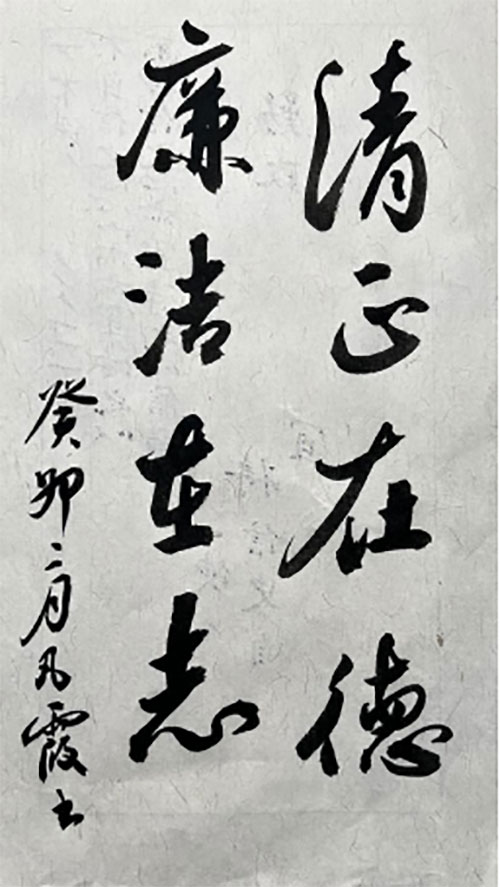 清正在德
廉洁在志
癸卯二月凡霞书